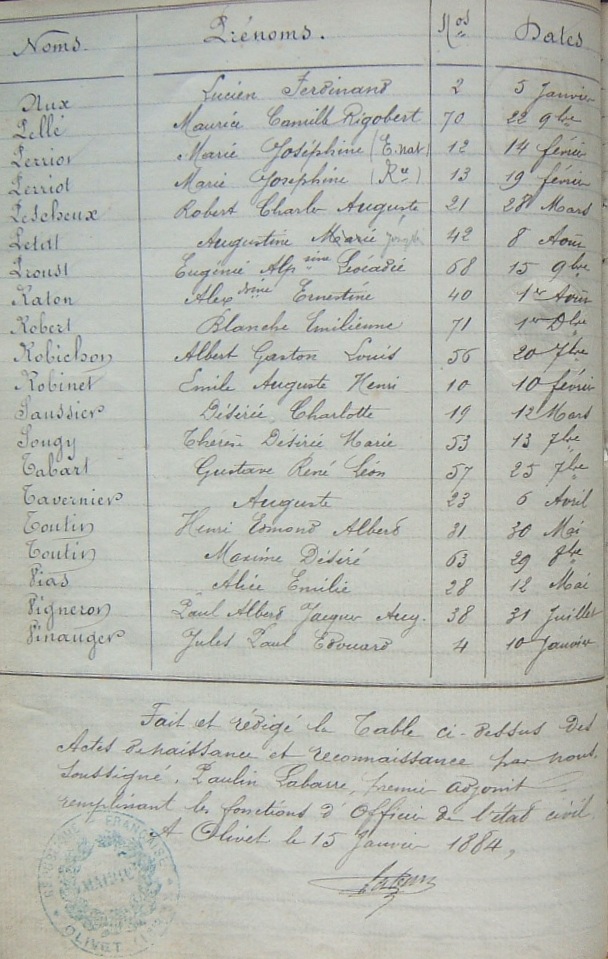 Noms. Prénoms. Nos Dates
Nux Lucien Ferdinand 2 5 Janvier
Pellé Maurice Camille Rigobert 70 22 9bre
Perriot Marie Joséphine (E. nat) 12 14 février
Perriot Marie Joséphine (Rce) 13 19 février
Pescheux Robert Charles Auguste 21 28 Mars
Petit Augustine Marie Joseph 42 8 Août
Proust Eugénie Alpsine Léocadie 68 15 9bre
Raton Alexdrine Ernestine 40 1er Août
Robert Blanche Emilienne 71 1er Dbre
Robichon Albert Gaston Louis 56 20 7bre
Robinet Emile Auguste Henri 10 10 février
Saussier Désirée Charlotte 19 12 Mars
Sougy Thérèse Désirée Marie 53 13 7bre
Tabart Gustave René Léon 57 25 7bre
Tavernier Auguste 23 6 Avril
Toutin Henri Edmond Albert 31 30 Mai
Toutin Maxime Désiré 63 29 8bre
Vias Alice Emilie 28 12 Mai
Vigneron Paul Albert Jacques Aug. 38 31 Juillet
Vinauger Jules Paul Edouard 4 10 Janvier
Fait et rédigé la Table ci-dessus des
Actes de naissance et reconnaissance par nous
Soussigné, Paulin Labarre, premier adjoint
remplissant les fonctions d'Officier de l'état civil.
A Olivet le 15 Janvier 1884,
RÉPUBLIQUE FRANÇAISE
MAIRIE
OLIVET